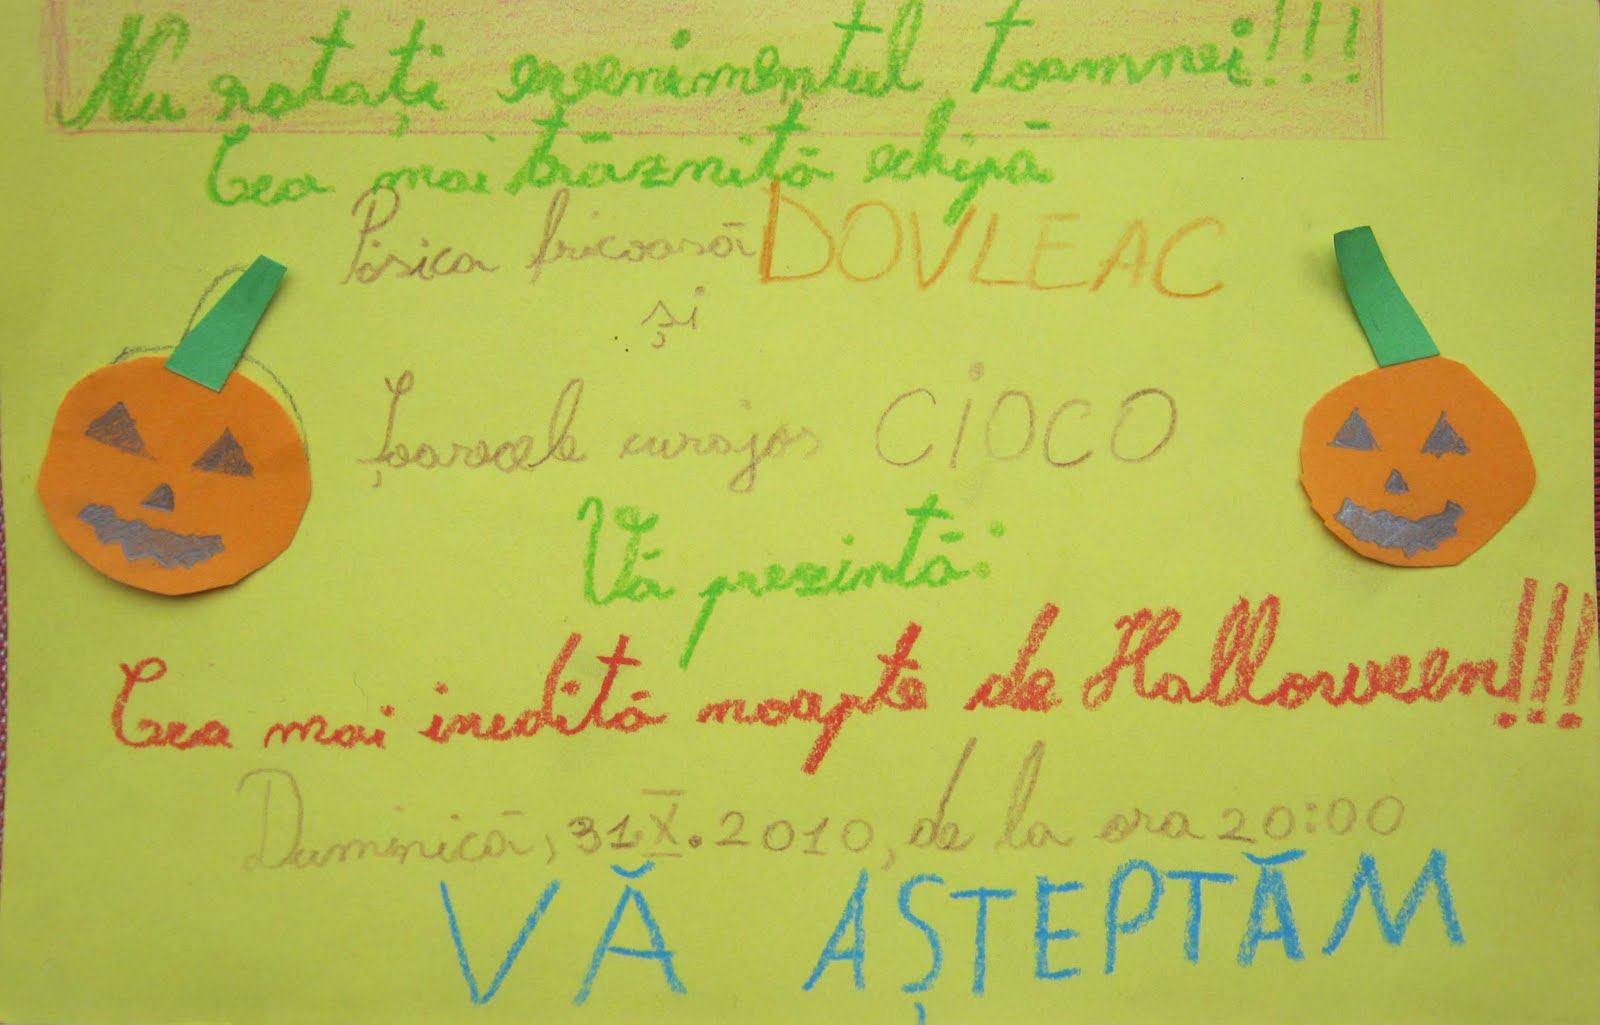 Nu ratați evenimentul toamnei!!!
Cea mai trăznită echipă
Pisica fricoasă DOVLEAC
și
Șoarecele curajos CIOCO
Vă prezintă:
Cea mai inedită noapte de Halloween!!!
Duminică, 31.X.2010, de la ora 20:00
VĂ AȘTEPTĂM